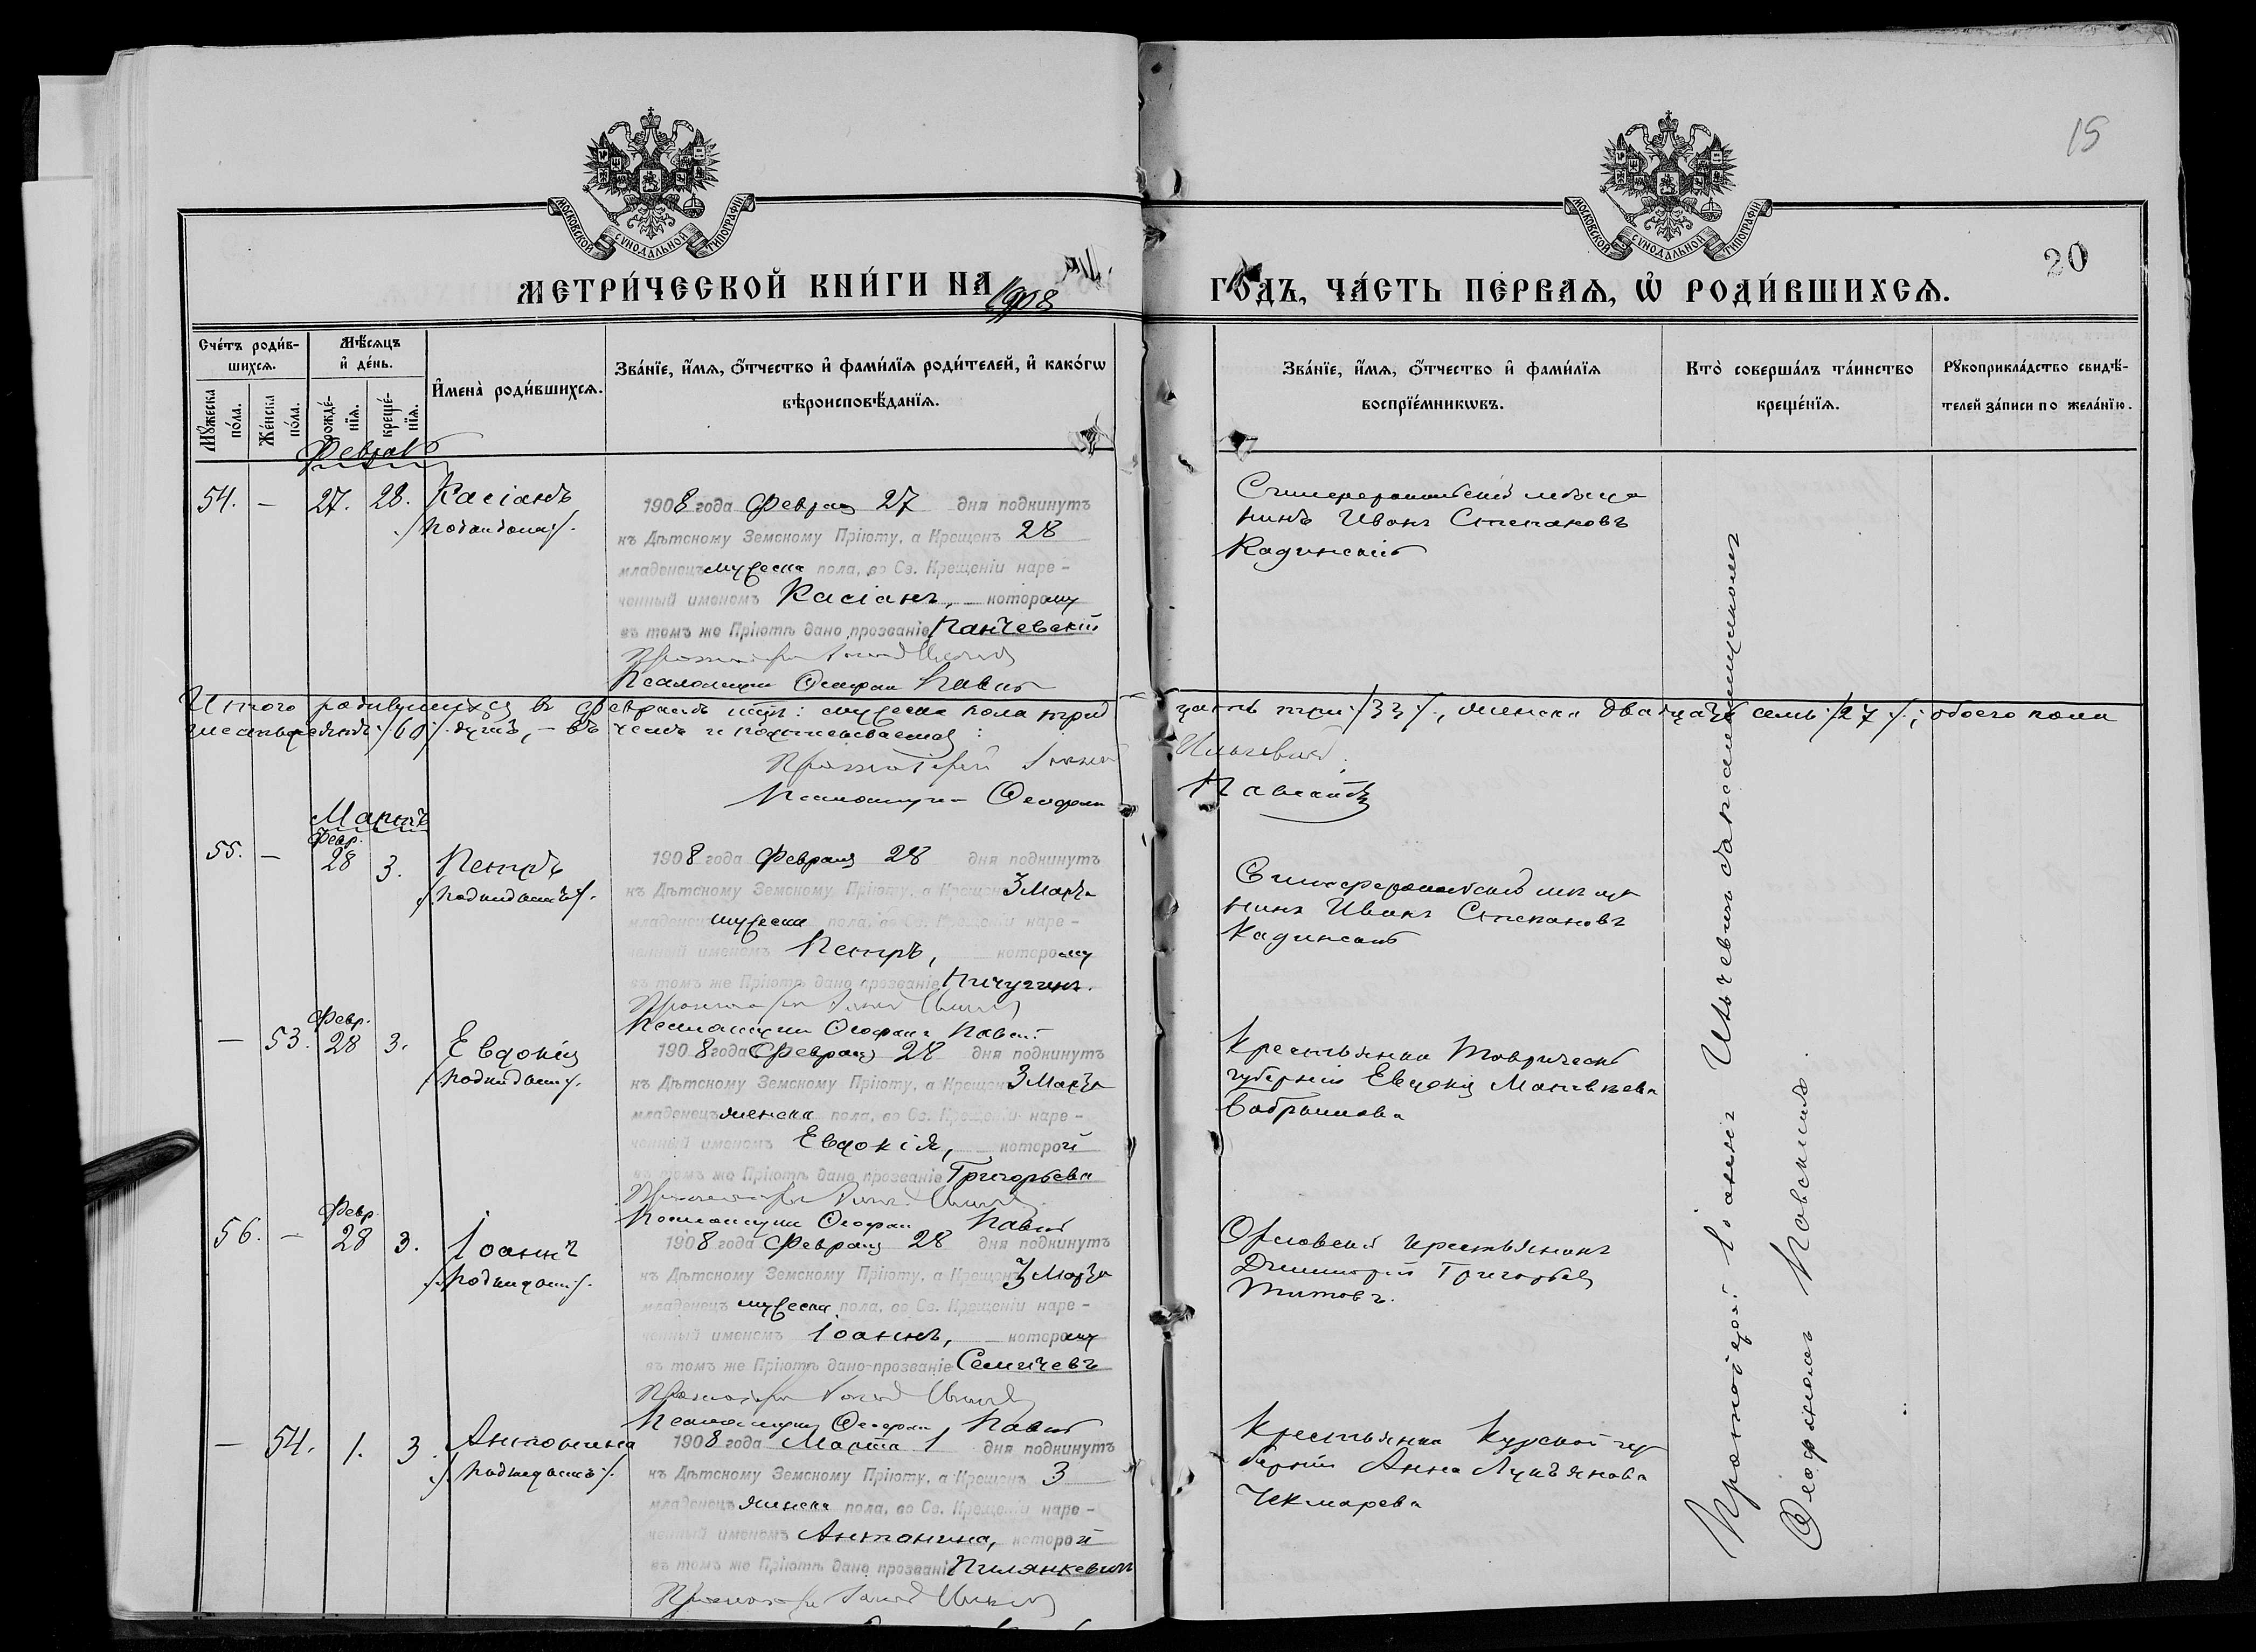 15
20
МОСКОВСКОЙ СѴНОДАЛЬНОЙ ТИПОГРАФІИ
МОСКОВСКОЙ СѴНОДАЛЬНОЙ ТИПОГРАФІИ
МЕТРИ́ЧЕСКОЙ КНИ́ГИ НА 1908
ГО́ДЪ, ЧА́СТЬ ПЕ́РВАѦ, Ѡ҆ РОДИ́ВШИХСѦ.
Сче́тъ роди́в-
шихсѧ.
Мꙋ́жеска
по́ла.
Же́нска
по́ла.
Мѣ́сѧцъ
и҆ де́нь.
рожде́-
нїѧ.
креще́-
нїѧ.
И҆мена̀ роди́вшихсѧ.
Зва́нїе, и҆́мѧ, ѻ҆́тчество и҆ фами́лїѧ роди́телей, и҆ како́гѡ
вѣроисповѣ́данїѧ.
Зва́нїе, и҆́мѧ, ѻ҆́тчество и҆ фами́лїѧ
воспрїе́мникѡвъ.
Кто̀ соверша́лъ та́инство
креще́нїѧ.
Рꙋкоприкла́дство свидѣ́-
телей за́писи по жела́нїю.
Февраль
54. — 27. 28. Касіанъ
/подкидышъ/.
1908 года Февраля 27 дня подкинутъ
къ Дѣтскому Земскому Пріюту, а Крещенъ 28
младенецъ мужеска пола, во Св. Крещеніи наре-
ченный именемъ Касіанъ, которому
въ томъ же Пріютѣ дано прозваніе Панчевскій
Протоіерей Іоаннъ
Псаломщикъ Ѳеофанъ
Симферопольскій мѣща
нинъ Иванъ Степановъ
Кадинскій
Итого родившихся въ февралѣ мѣс: мужеска пола трид
цать три /33/, женска двадцать семь /27/; обоего пола
шестьдесятъ /60/ душъ, — въ чемъ и подписываемся:
Протоіерей Іоаннъ
Псаломщикъ Ѳеофанъ
Мартъ
55. — Февр. 28 3. Петръ
/подкидышъ/.
1908 года Февраля 28 дня подкинутъ
къ Дѣтскому Земскому Пріюту, а Крещенъ 3 Марта
младенецъ мужеска пола, во Св. Крещеніи наре-
ченный именемъ Петръ, которому
въ томъ же Пріютѣ дано прозваніе Пичугинъ.
Протоіерей Іоаннъ
Псаломщикъ Ѳеофанъ
Симферопольскій мѣща
нинъ Иванъ Степановъ
Кадинскій
— 53. Февр. 28 3. Евдокія
/подкидышъ/.
1908 года Февраля 28 дня подкинутъ
къ Дѣтскому Земскому Пріюту, а Крещенъ 3 Марта
младенецъ женска пола, во Св. Крещеніи наре-
ченный именемъ Евдокія, которой
въ томъ же Пріютѣ дано прозваніе Григорьева
Протоіерей Іоаннъ
Псаломщикъ Ѳеофанъ
Крестьянка Таврической
губерніи Евдокія Матвѣева
56. — Февр. 28 3. Іоаннъ
/подкидышъ/.
1908 года Февраля 28 дня подкинутъ
къ Дѣтскому Земскому Пріюту, а Крещенъ 3 Марта
младенецъ мужеска пола, во Св. Крещеніи наре-
ченный именемъ Іоаннъ, которому
въ томъ же Пріютѣ дано прозваніе Семичевъ
Протоіерей Іоаннъ
Псаломщикъ Ѳеофанъ
Орловскій крестьянинъ
Димитрій Григорьевъ
Титовъ.
— 54. 1. 3. Антонина
/подкидышъ/.
1908 года Марта 1 дня подкинутъ
къ Дѣтскому Земскому Пріюту, а Крещенъ 3
младенецъ женска пола, во Св. Крещеніи наре-
ченный именемъ Антонина, которой
въ томъ же Пріютѣ дано прозваніе Пилянкевичъ
Протоіерей Іоаннъ
Крестьянка Курской гу
берніи Анна Лукьянова
Чекмарева
Протоіерей Іоаннъ Ильчевичъ съ псаломщикомъ
Ѳеофаномъ Павскимъ.